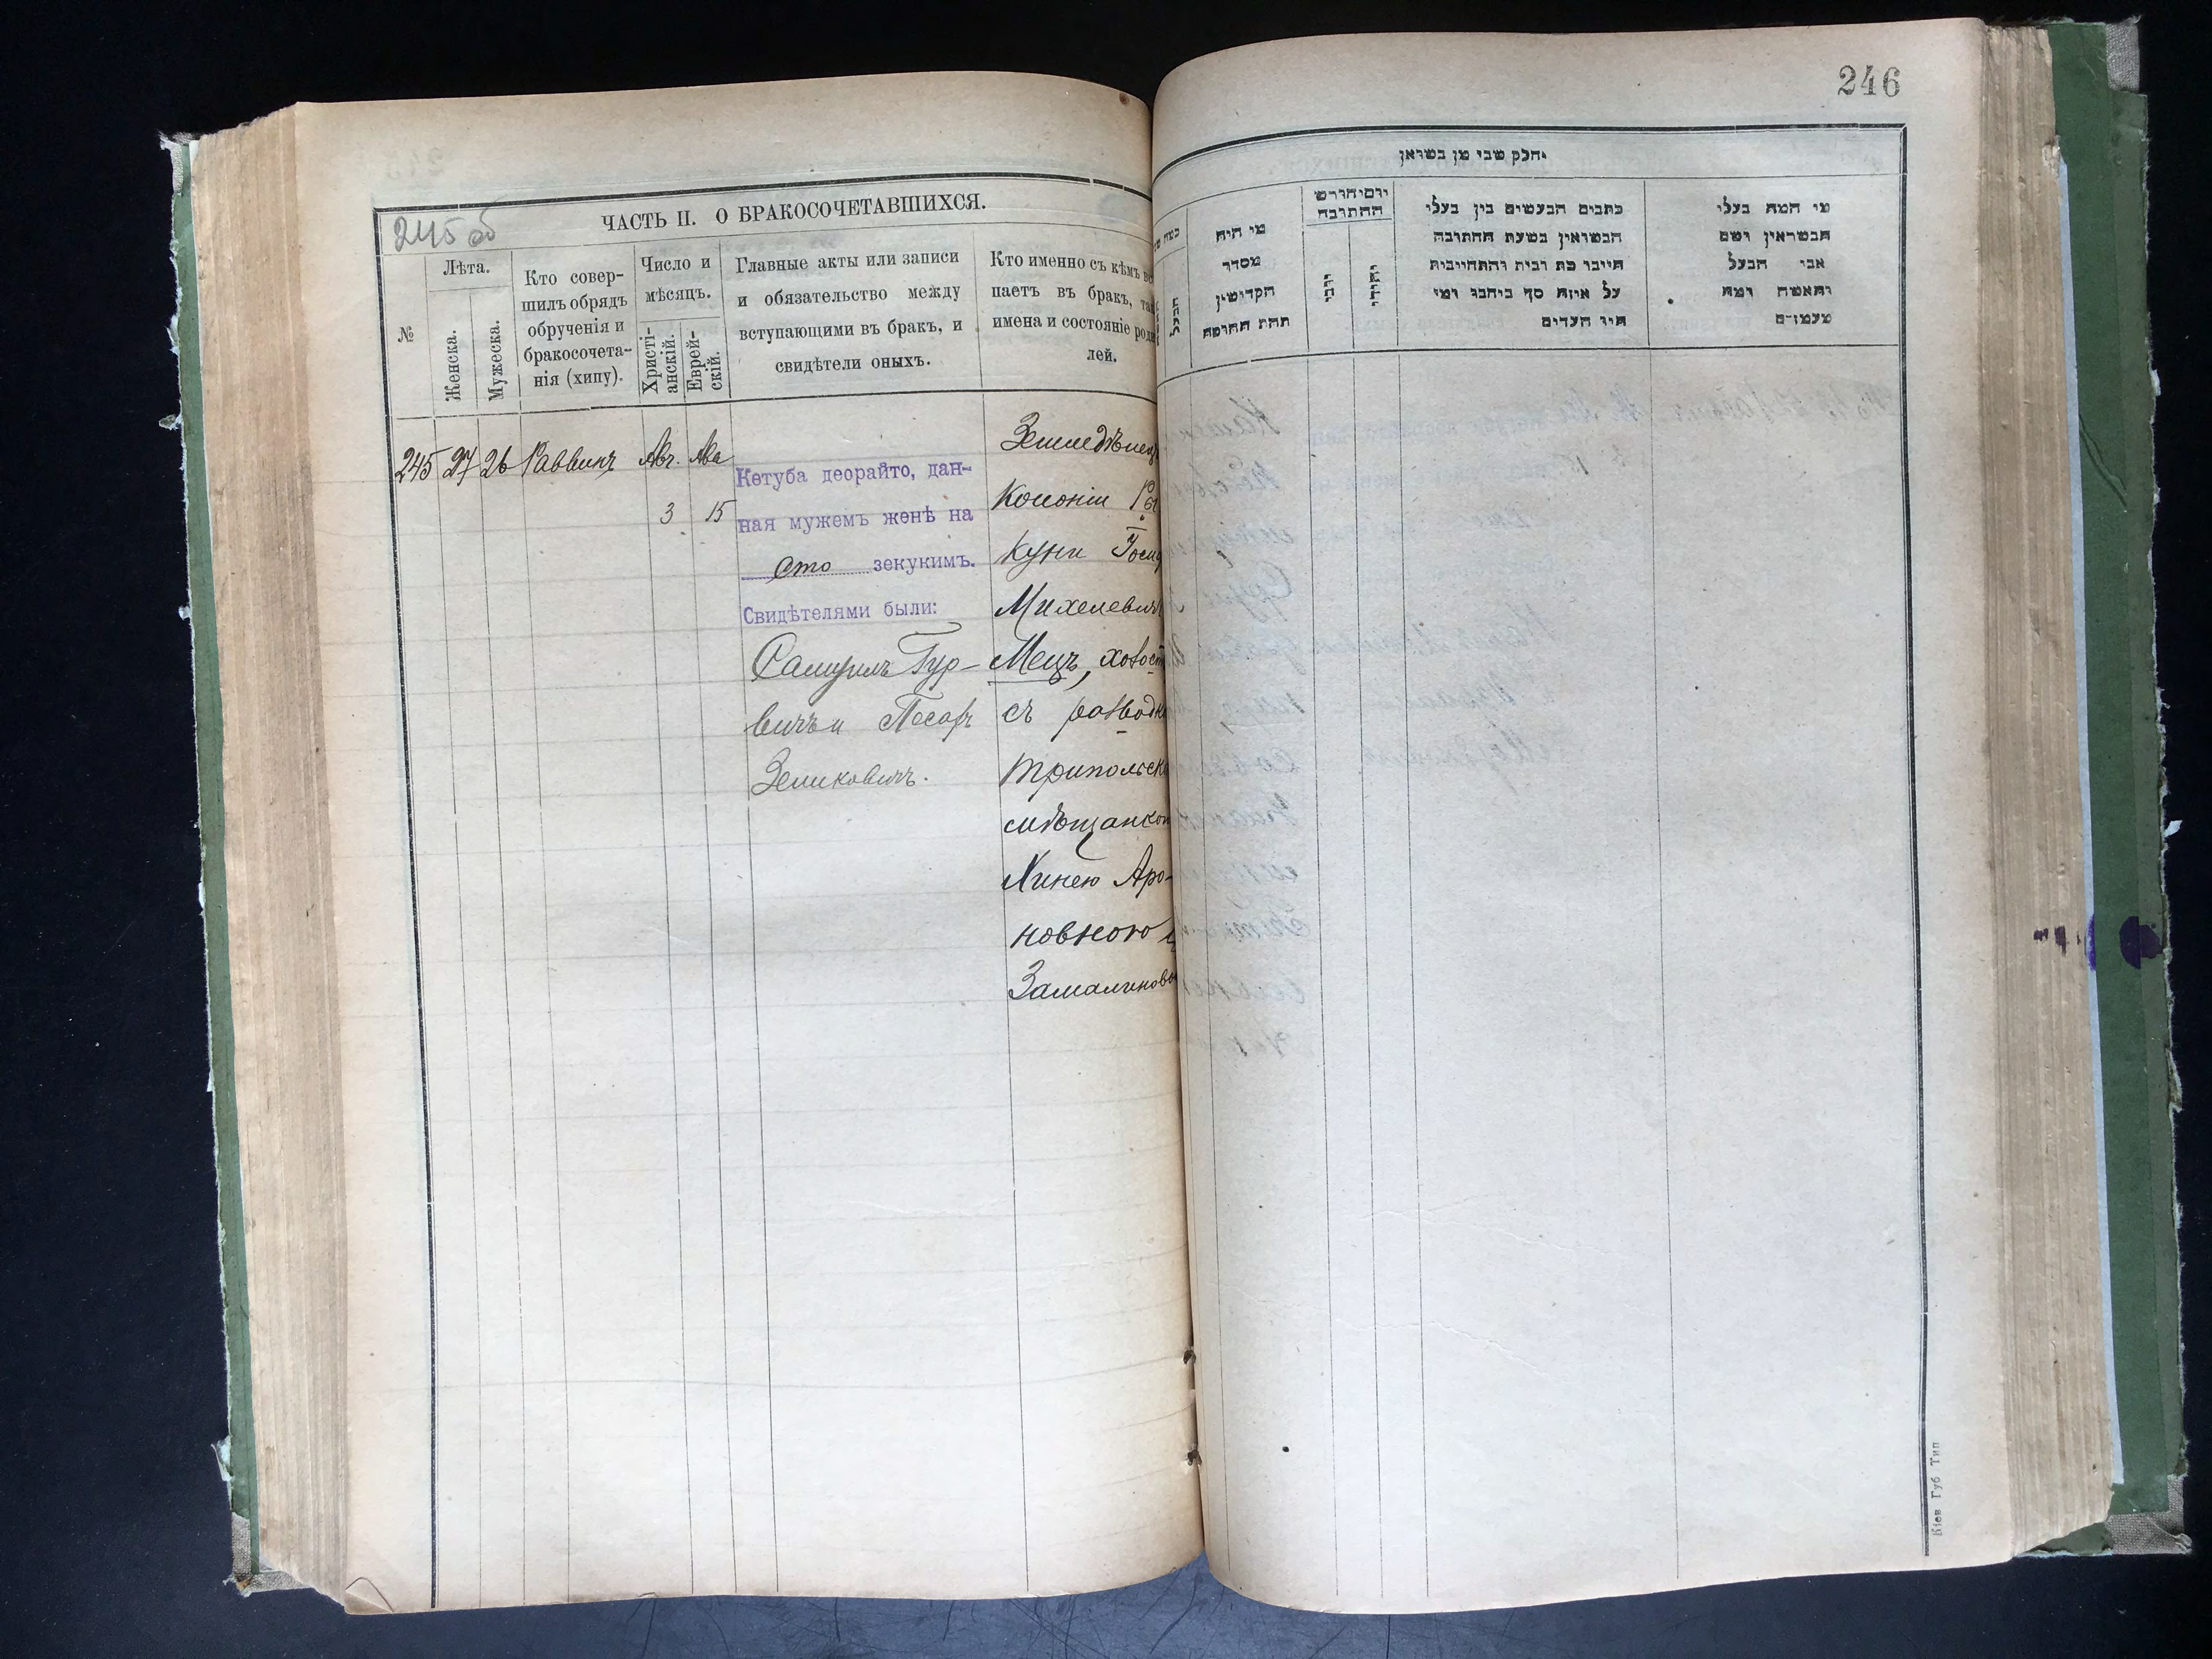 245 об
ЧАСТЬ II. О БРАКОСОЧЕТАВШИХСЯ.
№
Лѣта.
Женска.
Мужеска.
Кто совер-
шилъ обрядъ
обрученія и
бракосочета-
нія (хипу).
Число и
мѣсяцъ.
Христі-
анскій.
Еврей-
скій.
Главные акты или записи
и обязательство между
вступающими въ бракъ, и
свидѣтели оныхъ.
Кто именно съ кѣмъ
паетъ въ бракъ,
имена и состояніе
лей.
245 27 26 Раввинъ Авг. Ава
3 15
Кетуба деорайто, дан-
ная мужемъ женѣ на
сто зекукимъ.
Свидѣтелями были:
Самуилъ Гур-
вичъ и Песахъ
Зеликовичъ.
Земледѣлецъ
Колоніи
куни
Михелевичъ
Мецъ, холост
съ разводк
Трипольск
мѣщанкою
Хинею Аро-
новною
246
חלק שני מן נשואין
מי היה
מסדר
הקדושין
תחת החופה
יום וחודש
החתונה
נוצרי
יהודי
כתבים הנעשים בין בעלי
הנשואין בשעת החתונה
חיובי כת ובית והתחייבות
על איזה סך ביחבו ומי
היו העדים
מי המה בעלי
הנשואין ושם
אבי הבעל
והאשה ומה
מעמדם
הבעל
Кіев Губ Тип